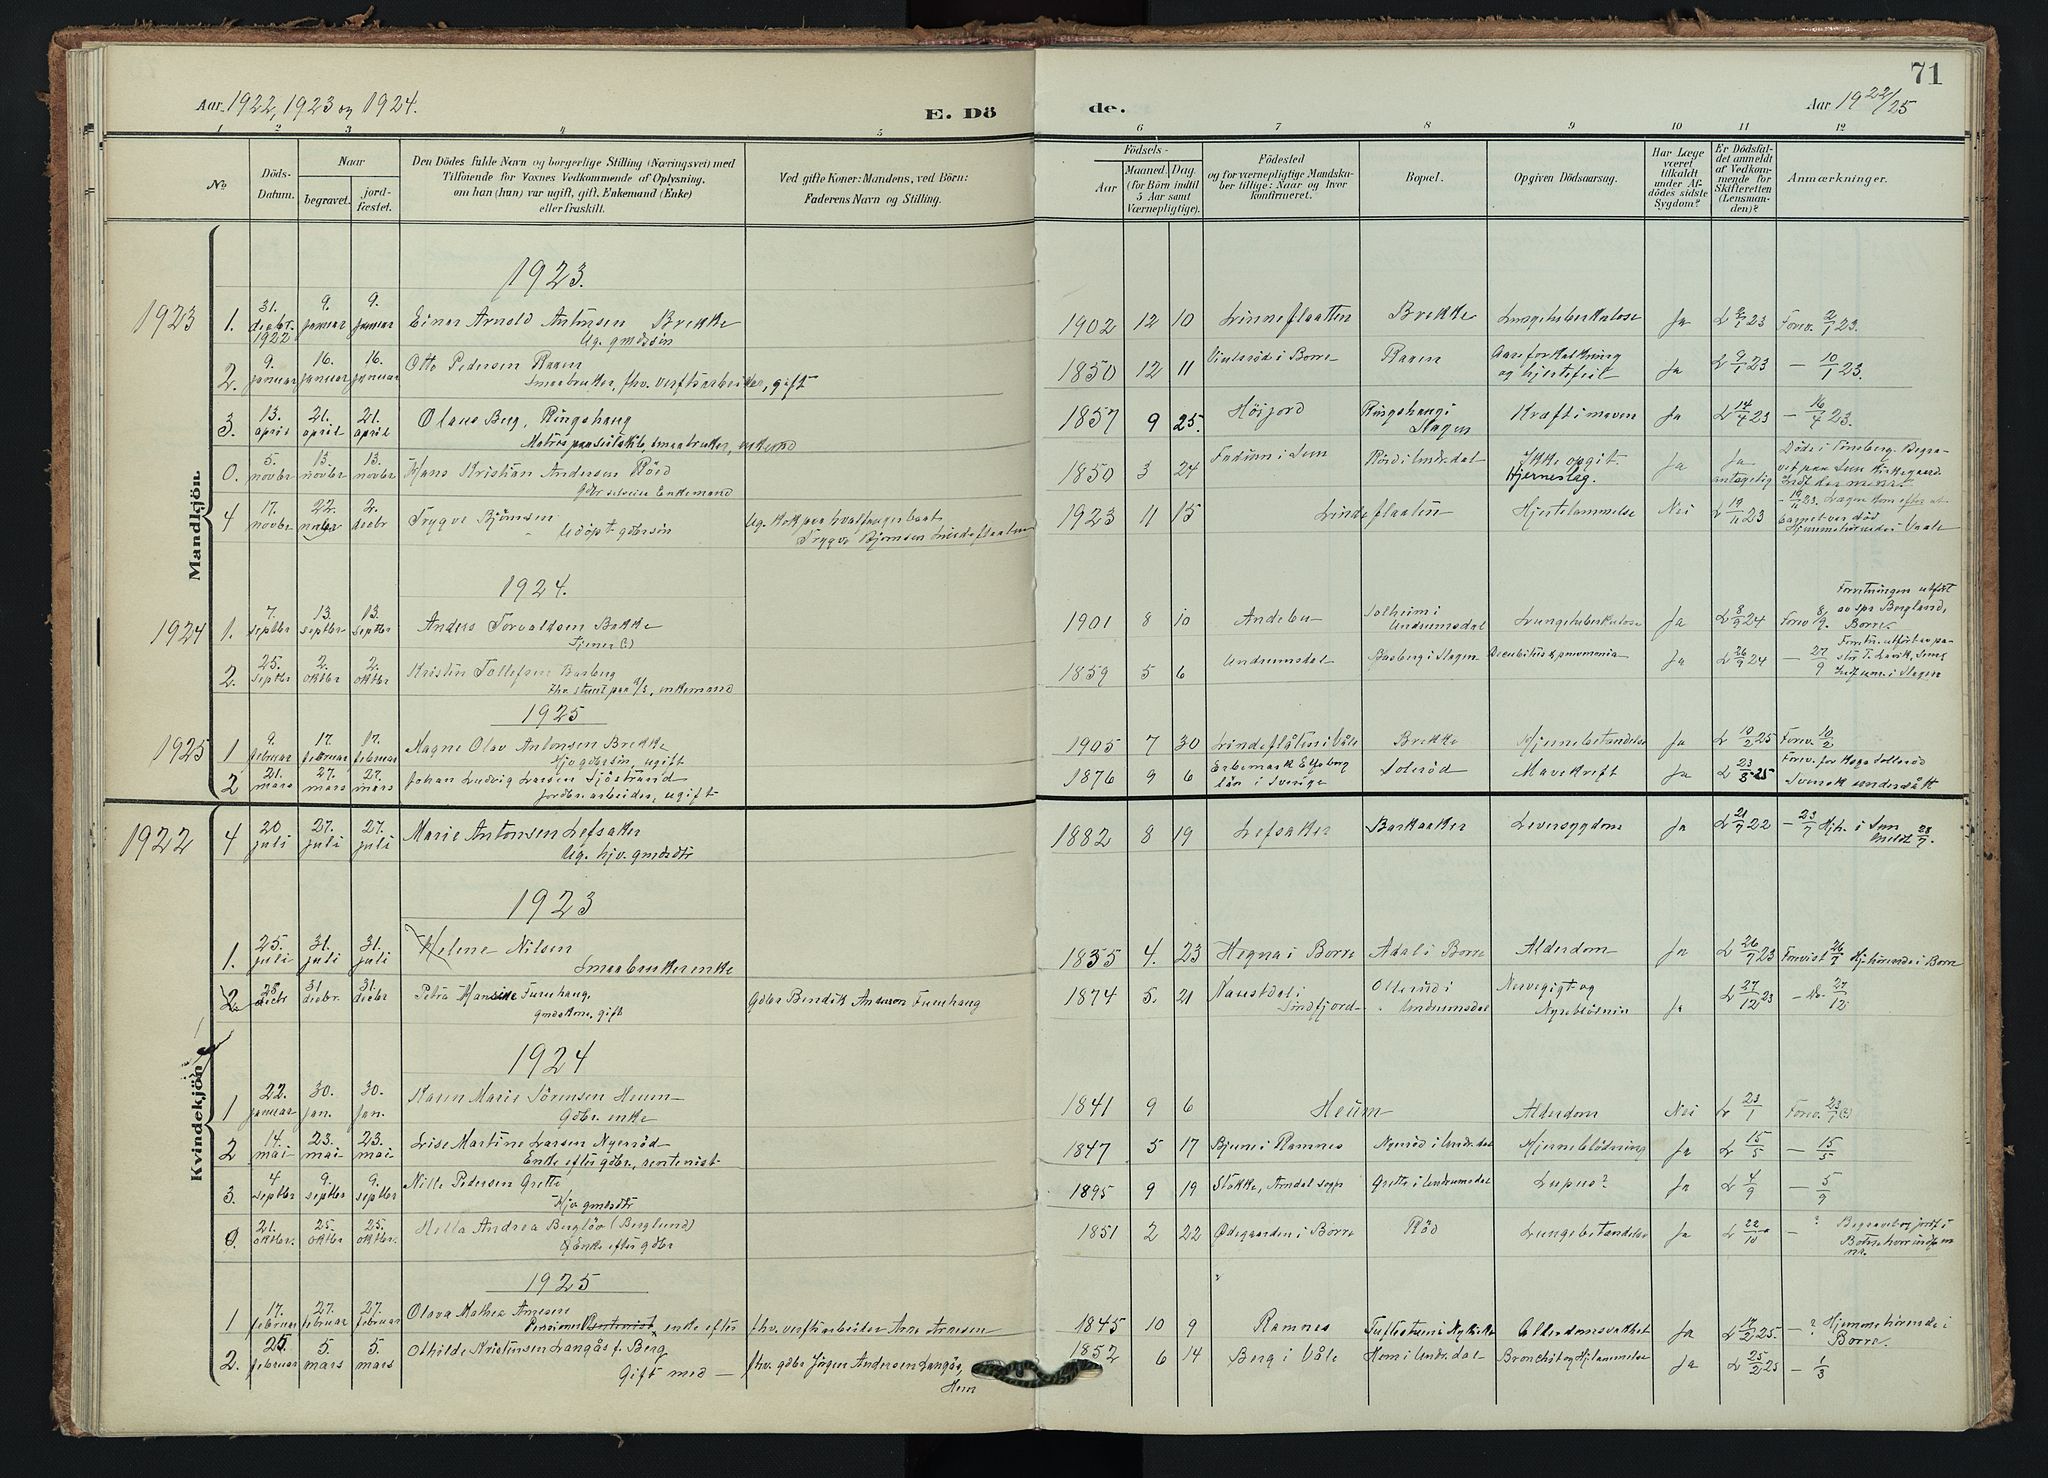 71
Aar 1922, 1923 og 1924.
E. Dö
de.
Aar 1922/25
1 2 3 4 5 6 7 8 9 10 11 12
No
Döds-Datum.
Naar
begravet.
jord-fæstet.
Den Dödes fulde Navn og borgerlige Stilling (Næringsvei) med
Tilföiende for Voxnes Vedkommende af Oplysning,
om han (hun) var ugift, gift, Enkemand (Enke)
eller fraskilt.
Ved gifte Koner: Mandens, ved Börn:
Faderens Navn og Stilling.
Födsels-
Aar
Maaned. Dag.
(for Börn indtil
5 Aar samt
Værnepligtige).
Födested
og for værnepligtige Mandska-
ber tillige: Naar og hvor
konfirmeret.
Bopæl.
Opgiven Dödsaarsag.
Har Læge
været
tilkaldt
under Af-
dödes sidste
Sygdom?
Er Dödsfal-
det anmeldt
af Vedkom-
mende for
Skifteretten
(Lensman-
den)?
Anmærkninger.
Mandkjön.
1923.
1923 1. 31. decbr. 1922 9. januar 9. januar Einar Arnold Antonsen Brekke
Ug. gmdssön
1902 12 10 Linneflaatten Brekke Lungetuberkulose Ja L 2/1 23 Forev. 2/1 23.
2. 9. januar 16. januar 16. januar Otto Pedersen Raaen
Smaabruker, fhv. verftsarbeider, gift
1850 12 11 i Borre Raaen Aareforkalkning
og hjertefeil Ja L 9/1 23 — 10/1 23.
3. 13. april 21. april 21. april Olaus Berg, Ringshaug
Matros paa seilskib, smaabruker,
1857 9 25. Höijord Ringshaug i
Slagen Kræft i maven Ja L 14/4 23 — 16/4 23.
0. 5. novbr 13. novbr 13. novbr Hans Kristian Andersen Röed
Enkemand
1850 3 24 i Sem Röed i Undr.dal Ikke opgit.
Hjerneslag. Ja Ja
antagelig Döde i Tönsberg. Begra-
vet paa Sem Kirkegaard.
4 17. novbr 22. novbr 2. decbr Trygve Björnsen
Udöpt gdbrsön
Ug. Kok paa hvalfangerbaat
Trygve Björnsen Lindeflaaten
1923 11 15 Lindeflaaten Hjertelammelse Nei L 19/11 23 — 19/11 23. Lægen kom efter at
barnet var död
Hjemmehörende i Vaale
1924.
1924 1. 7. septbr 13. septbr 13. septbr Anders Torvaldsen Bakke
Tjener (?)
1901 8 10 Andebu Solheim i
Undrumsdal Lungetuberkulose Ja L 8/9 24 Forev 8/9. Forretningen utfört
av spr Bergland,
Borre.
2. 25. septbr 2. oktbr 2. oktbr Kristen Tollefsen Basberg
fhv. stuert paa a/s, enkemand
1859 5 6 Undrumsdal Basberg i Slagen Decubitus & pneumonia Ja L 26/9 24 — 27/9 Forretn. utfört av pa-
stor T. Lavik, Sems
i Slagen
1925
1925 1 9. februar 17. februar 17. februar Magne Olav Antonsen Brekke
Hjv gdbrsön, ugift
1905 7 30 Lindeflåten i Våle Brekke Hjernebetændelse Ja L 10/2 25 Forev. 10/2
2 21. mars 27. mars 27. mars Johan Ludvig Larsen Sjöstrand
Jordbr. arbeider, ugift
1876 9 6 Erbemark Elfsborg
län i Sverige Solerød Mavekreft Ja L 23/3 25 Forev. for Haga Sollerød
Svensk undersått
Kvindekjön
1922 4 20 juli 27. juli 27. juli Marie Antonsen Lefsaker
Ug. hjv. gmdsdtr
1882 8 19 Lefsaker Barkaaker Leversygdom Ja L 21/7 22 — 23/7 Hjh. i Sem
anmeldt 28/7.
1923
1. 25. juli 31. juli 31. juli Helene Nilsen
Smaabrukerenke
1835 4. 23 Hegna i Borre Adal i Borre Alderdom Ja L 26/7 23 Forevist 26/7 Hj. hörende i Borre
2. 28 decbr 31. decbr. 31. decbr Petra Hansine Furuhaug,
gmdskone, gift
Gdbr Bendik Andersen Furuhaug
1874 5. 21 Naustdal i
Söndfjord Olleröd i
Undrumsdal Nervegigt og
Nyreblödnin Ja L 27/12 23 — Do. 27/12
1924
1 22. januar 30. jan. 30. jan. Karen Marie Sörensen Heum
Gdbr. enke
1841 9 6 Heum Alderdom Nei L 23/1 Forev. 23/1 (?)
2 14. mai 23. mai 23. mai Lise Martine Larsen Nyeröd
Enke efter gdbr., rentenist
1847 5 17 Bjune i Ramnes Nyeröd i Undr. dal Hjerneblödning Ja L 15/5 — 15/5
3. 4 septbr 9. septbr 9. septbr Nille Pedersen Grette
Hjv. gmdsdtr
1895 9 19 Stokke, Arndal sogn Grette i Undrumsdal Lupus? Ja L 4/9 — 5/9
0. 21. oktbr. 25. oktbr 25. oktbr. Hella Andrea Bergløv (Berglund)
Enke efter gdbr
1851 2 22 Ødegaarden i Borre Röd Lungebetændelse Ja L 22/10 — ? Begravet og jordf. i
Borre hvor indf. m
nr.
1925
1 17. februar 27. februar 27. februar Olava Mathea Arnesen
Pensionist enke efter fhv. verftsarbeider Arne Arnesen
1845 10 9 Ramnes Alderdomsvakhet Ja L 17/2 25. — ? Hjemmehörende i
Borre.
2. 25. februar 5. mars 5. mars Othilde Kristensen Langås f. Berg
Gift med — fhv. gdbr Jörgen Andersen Langås,
Hem
1852 6 14 Berg i Våle Hem i Undr. dal Bronchit og Hj.lammelse Ja L 25/2 25 — 1/3